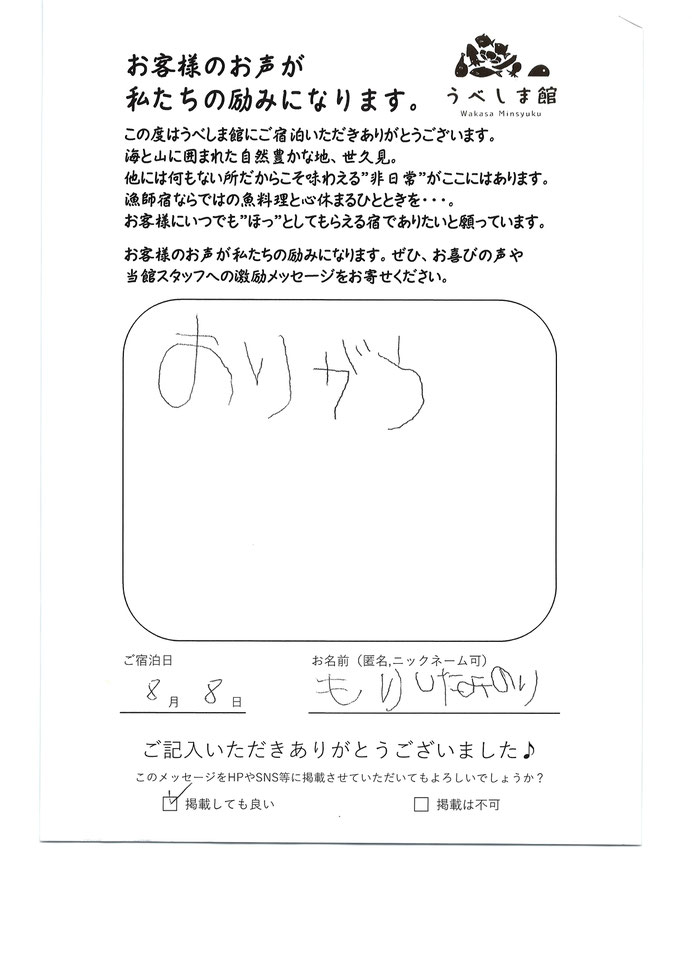 お客様のお声が
私たちの励みになります。
うべしま館
Wakasa Minsyuku
この度はうべしま館にご宿泊いただきありがとうございます。
海と山に囲まれた自然豊かな地、世久見。
他には何もない所だからこそ味わえる”非日常”がここにはあります。
漁師宿ならではの魚料理と心休まるひとときを・・・。
お客様にいつでも”ほっ”としてもらえる宿でありたいと願っています。
お客様のお声が私たちの励みになります。ぜひ、お喜びの声や
当館スタッフへの激励メッセージをお寄せください。
おりがとう
ご宿泊日
お名前（匿名,ニックネーム可）
8月 8日
もりした
ご記入いただきありがとうございました♪
このメッセージをHPやSNS等に掲載させていただいてもよろしいでしょうか？
掲載しても良い
掲載は不可